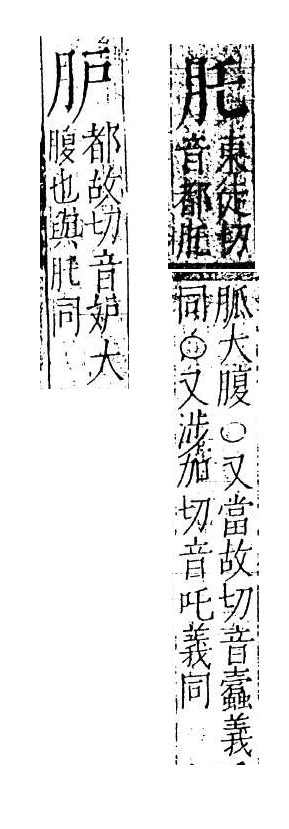 東徒切
音都
胍大腹○又當故切音蠹義
同◎又涉加切音吒義同
都故切音妒大
腹也與同